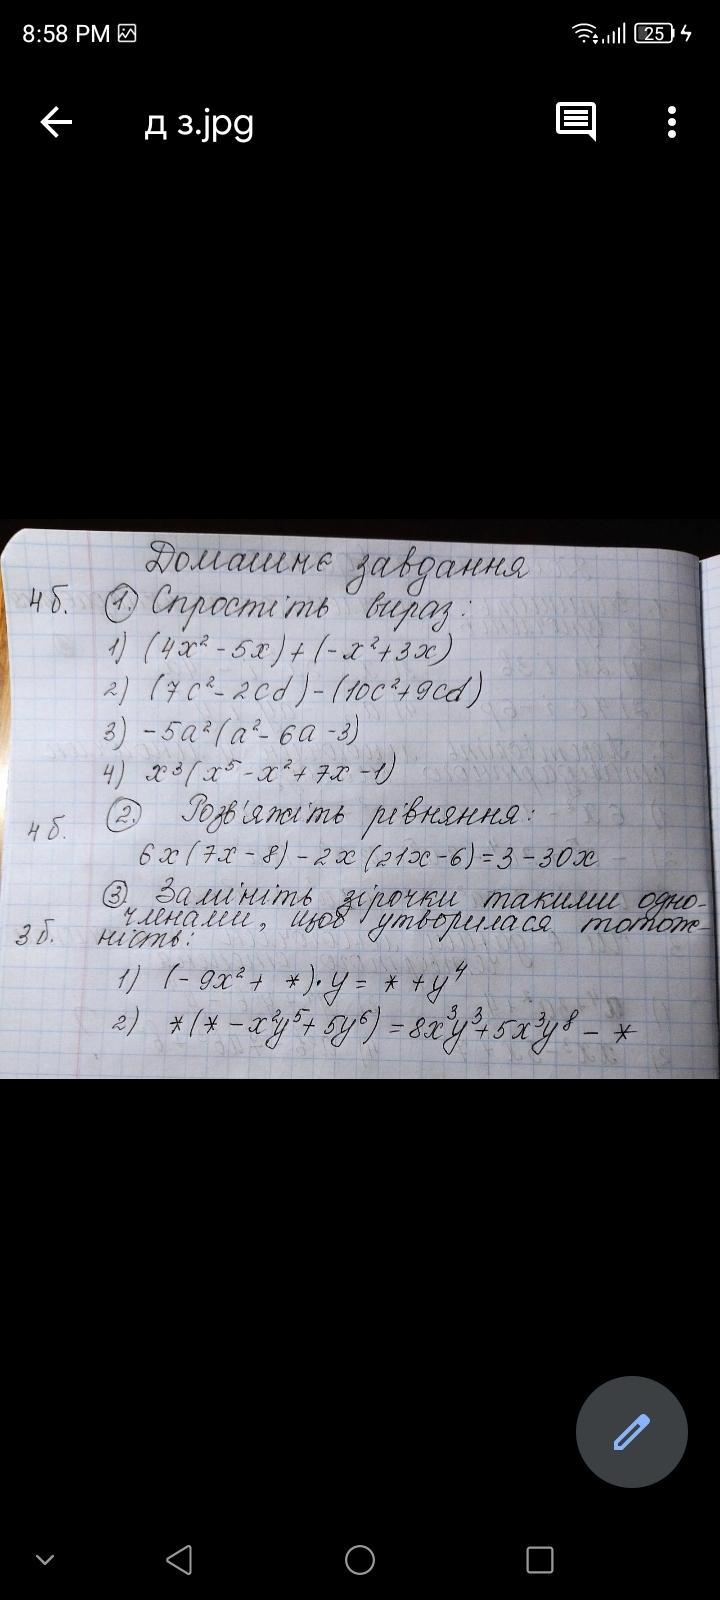 8:58 PM
25
д з.jpg
Домашнє завдання
4б. 1. Спростіть вираз:
1) (4x² - 5x) + (-x² + 3x)
2) (7c² - 2cd) - (10c² + 9cd)
3) -5a²(a² - 6a - 3)
4) x³(x⁵ - x² + 7x - 1)
4б. 2. Розв'яжіть рівняння:
6x(7x - 8) - 2x(21x - 6) = 3 - 30x
3 Замініть зірочки такими одно-
членами, щоб утворилася тотож-
3б. ність:
1) (-9x² + *)·y = * + y⁴
2) *(* - x²y⁵ + 5y⁶) = 8x³y³ + 5x³y⁸ - *